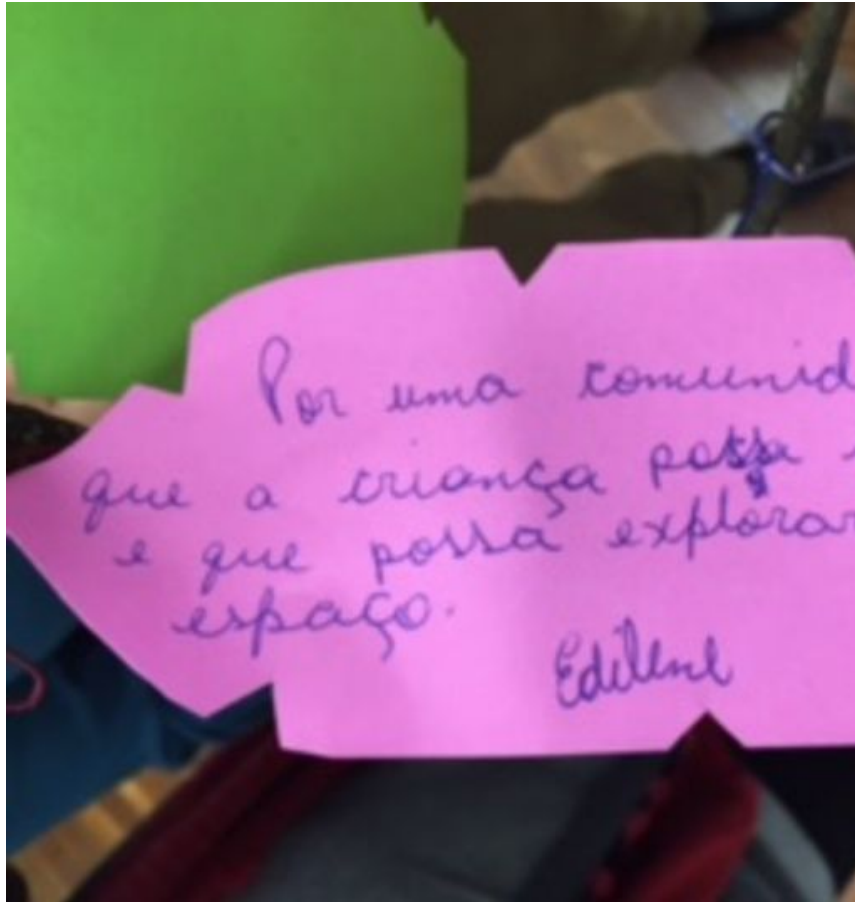 Por uma comunid
que a criança possa
e que possa explorar
espaço.
Edilene